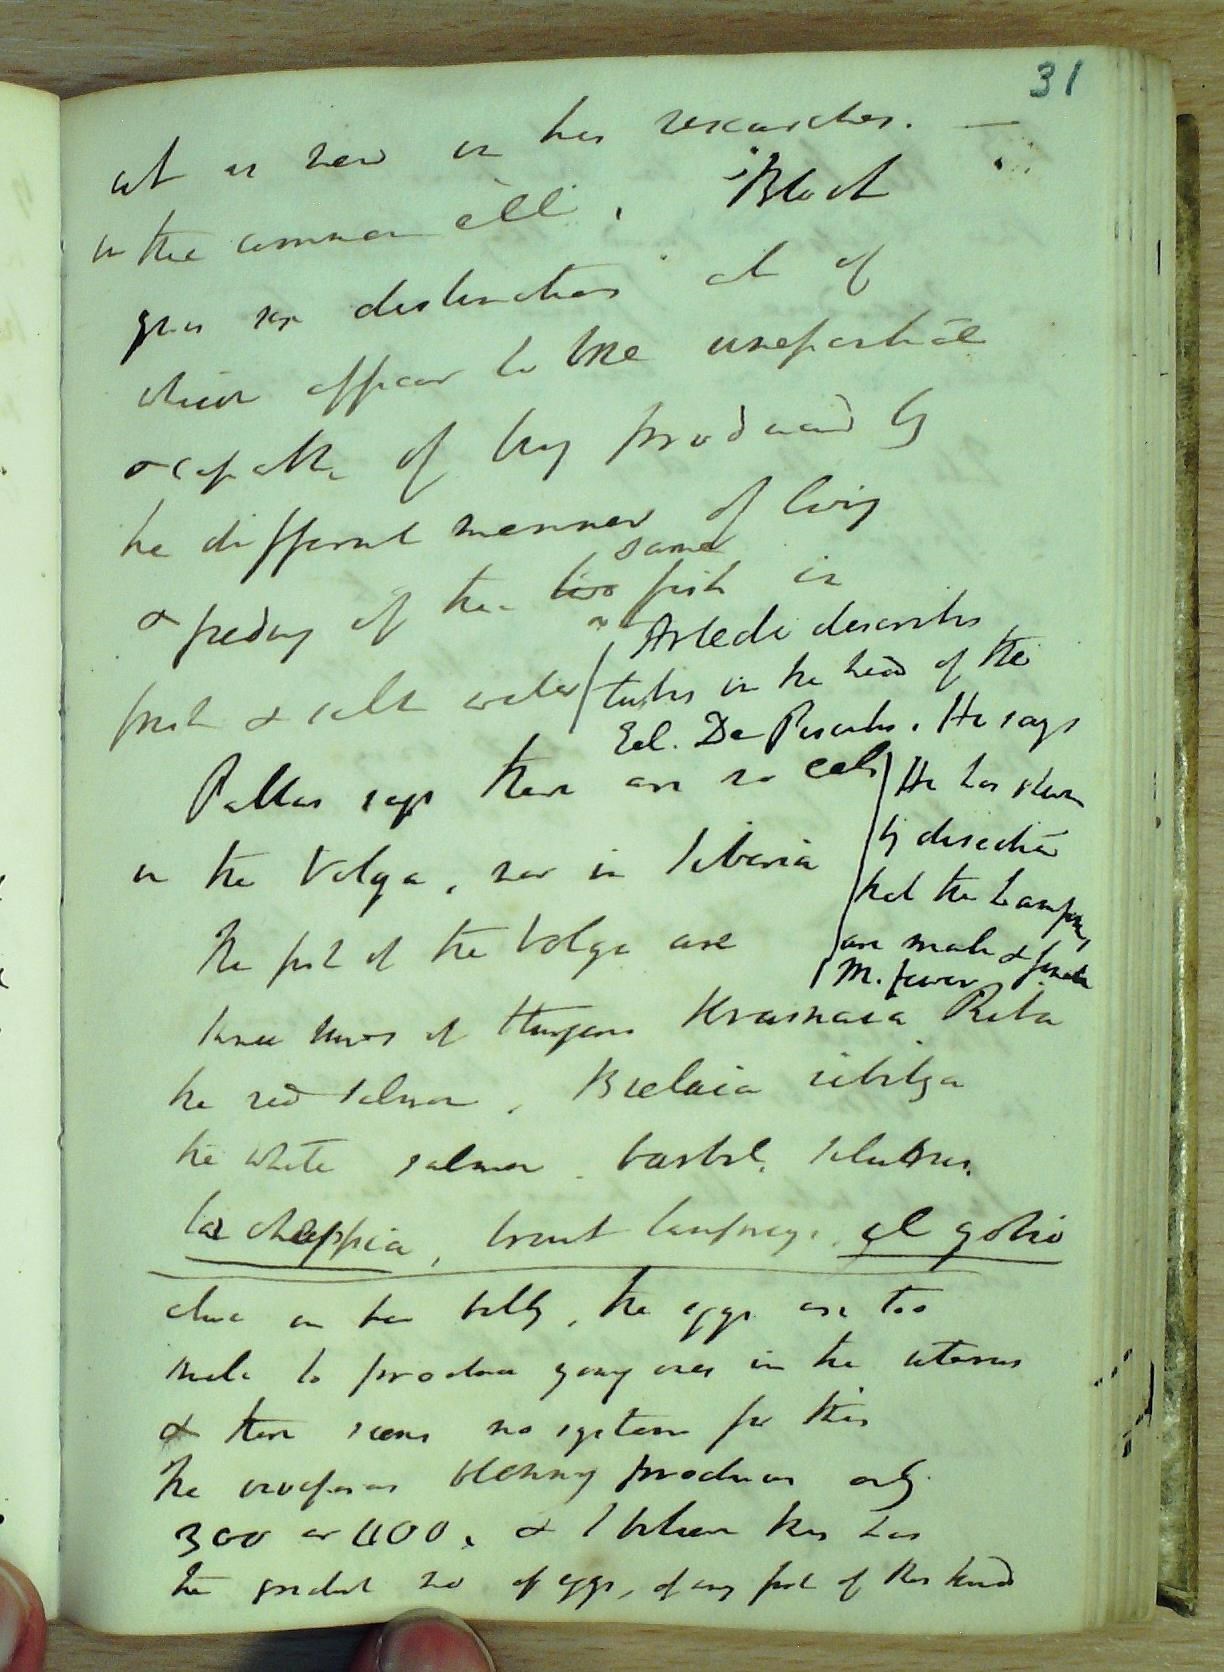 31
us new in his researches. —
in the common eel. Bloch
gives six distinctions all of
which appear to me
& capable of being produced by
the different manner of living
same
& feeding of the two fish in
fresh & salt water
Artedi describes
tubes in the head of the
Eel. De Piscibus. He says
Pallas says there are no eels
in the Volga, nor in Siberia
He has shown
by dissection
that the Lampreys
are male & female
M. fewer
The fish of the Volga are
three kinds of Sturgeons Krasnaia Riba
the red salmon, Bielaia ribitza
the white salmon. barbel, silurus.
la cheppia, trout lampreys, el gobio
alive in her belly, the eggs are too
small to produce young ones in the uterus
& there seems no system for this
The viviparous blenny produces only
300 or 400. & I believe this has
the greatest no of eggs, of any fish of this kind